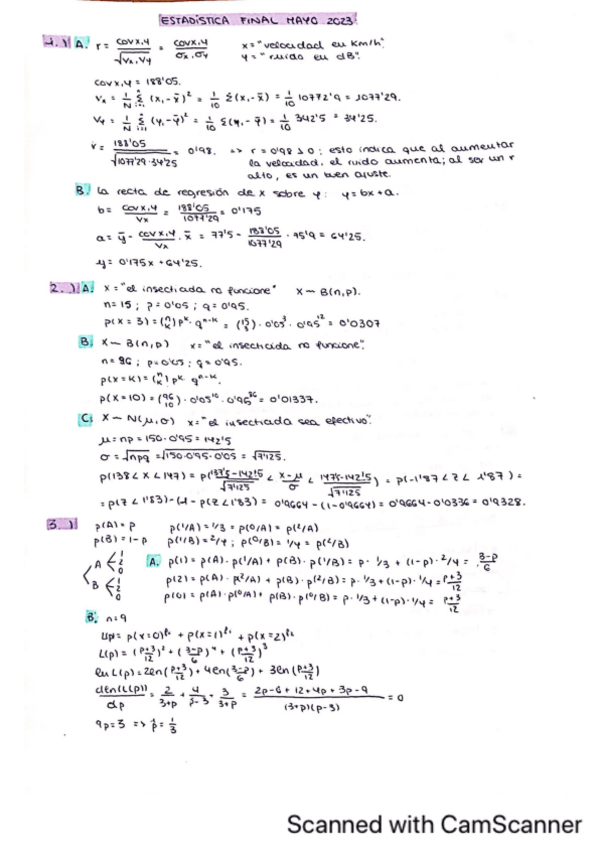 ESTADÍSTICA FINAL MAYO 2023
1.) A. r = covx,y / √Vx.Vy = covx,y / σx.σy   x = "velocidad en km/h"
y = "ruido en dB"
covx,y = 188'05
Vx = 1/N Σ (xi - x̄)² = 1/10 Σ(xi - x̄) = 1/10 10772'9 = 1077'29.
Vy = 1/N Σ (yi - ȳ)² = 1/10 Σ(yi - ȳ) = 1/10 342'5 = 34'25.
r = 188'05 / √1077'29·34'25 = 0'98. => r = 0'98 > 0; esto indica que al aumentar
la velocidad, el ruido aumenta; al ser un r
alto, es un buen ajuste.
B. La recta de regresión de x sobre y: y = bx + a.
b = covx,y / Vx = 188'05 / 1077'29 = 0'175
a = ȳ - covx,y / Vx · x̄ = 77'5 - 188'05 / 1077'29 · 75'9 = 64'25.
y = 0'175x + 64'25.
2.) A. x = "el insecticida no funcione"   x ~ B(n,p).
n = 15 ; p = 0'05 ; q = 0'95.
p(x = 3) = (n k) p^k · q^n-k = (15 3) · 0'05³ · 0'95¹² = 0'0307
B. x ~ B(n,p)   x = "el insecticida no funcione".
n = 96 ; p = 0'05 ; q = 0'95.
p(x = k) = (n k) p^k · q^n-k.
p(x = 10) = (96 10) · 0'05¹⁰ · 0'95⁸⁶ = 0'01337.
C. x ~ N(μ,σ)   x = "el insecticida sea efectivo".
μ = np = 150·0'95 = 142'5
σ = √npq = √150·0'95·0'05 = √7'125.
p(138 < x < 147) = p(137'5-142'5 / √7'125 < x-μ / σ < 147'5-142'5 / √7'125) = p(-1'87 < z < 1'87) =
= p(z < 1'83) - (1 - p(z < 1'83) = 0'9664 - (1 - 0'9664) = 0'9664 - 0'0336 = 0'9328.
3.) p(A) = p   p(1/A) = 1/3 = p(0/A) = p(2/A)
p(B) = 1-p   p(1/B) = 2/4 ; p(0/B) = 1/4 = p(2/B)
A 1 2 0
B 1 2 0
A. p(1) = p(A) · p(1/A) + p(B) · p(1/B) = p · 1/3 + (1-p) · 2/4 = 3-p / 6
p(2) = p(A) · p(2/A) + p(B) · p(2/B) = p · 1/3 + (1-p) · 1/4 = p+3 / 12
p(0) = p(A) · p(0/A) + p(B) · p(0/B) = p · 1/3 + (1-p) · 1/4 = p+3 / 12
B. n = 9
L(p) = p(x=0) + p(x=1) + p(x=2)
L(p) = (p+3 / 12)² + (3-p / 6)⁴ + (p+3 / 12)³
ln L(p) = 2ln(p+3 / 12) + 4ln(3-p / 6) + 3ln(p+3 / 12)
dln(L(p)) / dp = 2 / 3+p + 4 / p-3 + 3 / 3+p = 2p-6+12+4p+3p-9 / (3+p)(p-3) = 0
9p = 3 => p̂ = 1/3
Scanned with CamScanner